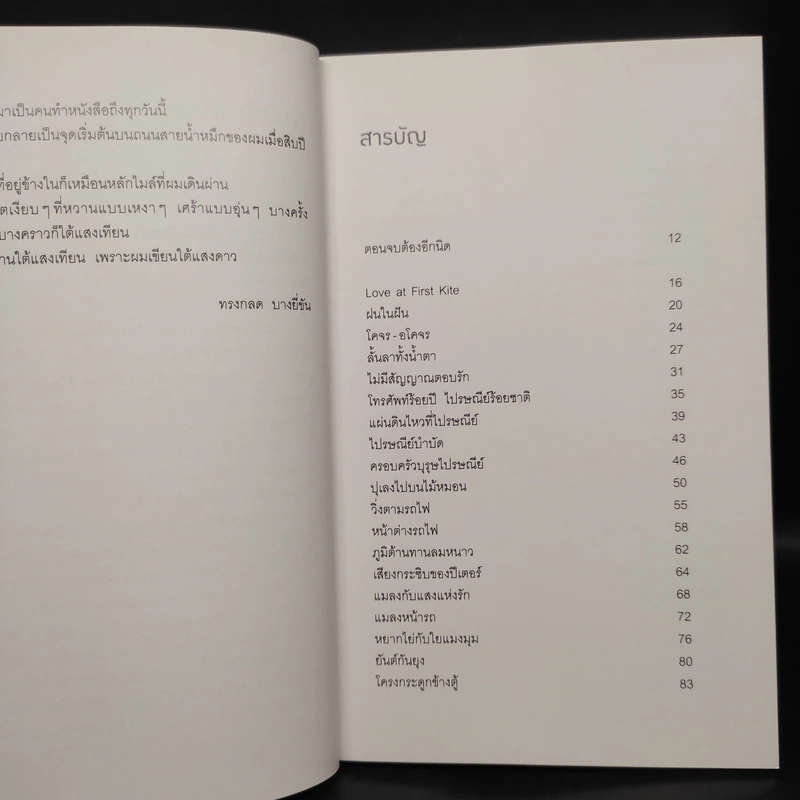 มาเป็นคนทำหนังสือถึงทุกวันนี้
กลายเป็นจุดเริ่มต้นบนถนนสายน้ำหมึกของผมเมื่อสิบปี
ที่อยู่ข้างในก็เหมือนหลักไมล์ที่ผมเดินผ่าน
เงียบๆ ที่หวานแบบเหงาๆ เศร้าแบบอุ่นๆ บางครั้ง
บางคราวก็ใต้แสงเทียน
ใต้แสงเทียน เพราะผมเขียนใต้แสงดาว
ทรงกลด บางยี่ขัน
สารบัญ
ตอนจบต้องอีกนิด 12
Love at First Kite 16
ฝนในฝัน 20
โคจร-อโคจร 24
ลั้นลาทั้งน้ำตา 27
ไม่มีสัญญาณตอบรัก 31
โทรศัพท์ร้อยปี ไปรษณีย์ร้อยชาติ 35
แผ่นดินไหวที่ไปรษณีย์ 39
ไปรษณีย์บำบัด 43
ครอบครัวบุรุษไปรษณีย์ 46
ปูเลงไปบนไม้หมอน 50
วิ่งตามรถไฟ 55
หน้าต่างรถไฟ 58
ภูมิต้านทานลมหนาว 62
เสียงกระซิบของปีเตอร์ 64
แมลงกับแสงแห่งรัก 68
แมลงหน้ารถ 72
หยากไย่กับใยแมงมุม 76
ยันต์กันยุง 80
โครงกระดูกข้างตู้ 83